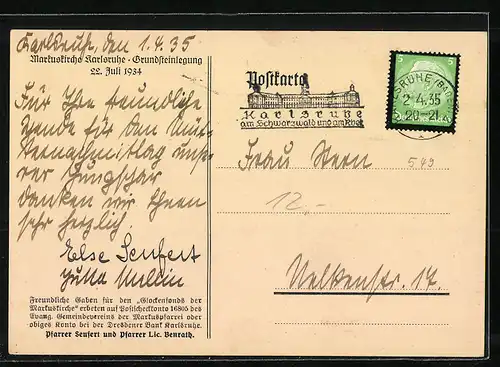 Karlsruhe, den 1.4.35
Markuskirche Karlsruhe · Grundsteinlegung
22. Juli 1934
Für Ihre freundliche
Spende für den Mütternachmittag unserer Jungschar
danken wir Ihnen
sehr herzlich.
Else Seufert
Jutta
Freundliche Gaben für den „Glockenfonds der
Markuskirche" erbeten auf Postscheckkonto 16805 des
Evang. Gemeindevereins der Markuspfarrei oder
obiges Konto bei der Dresdener Bank Karlsruhe.
Pfarrer Seufert und Pfarrer Lic. Benrath.
Postkarte
Karlsruhe
am Schwarzwald und am Rhein
5
5
SRUHE (BADEN)
2.4.35
20-21
Frau Stern
5.49
12,-
Nelkenstr. 17.